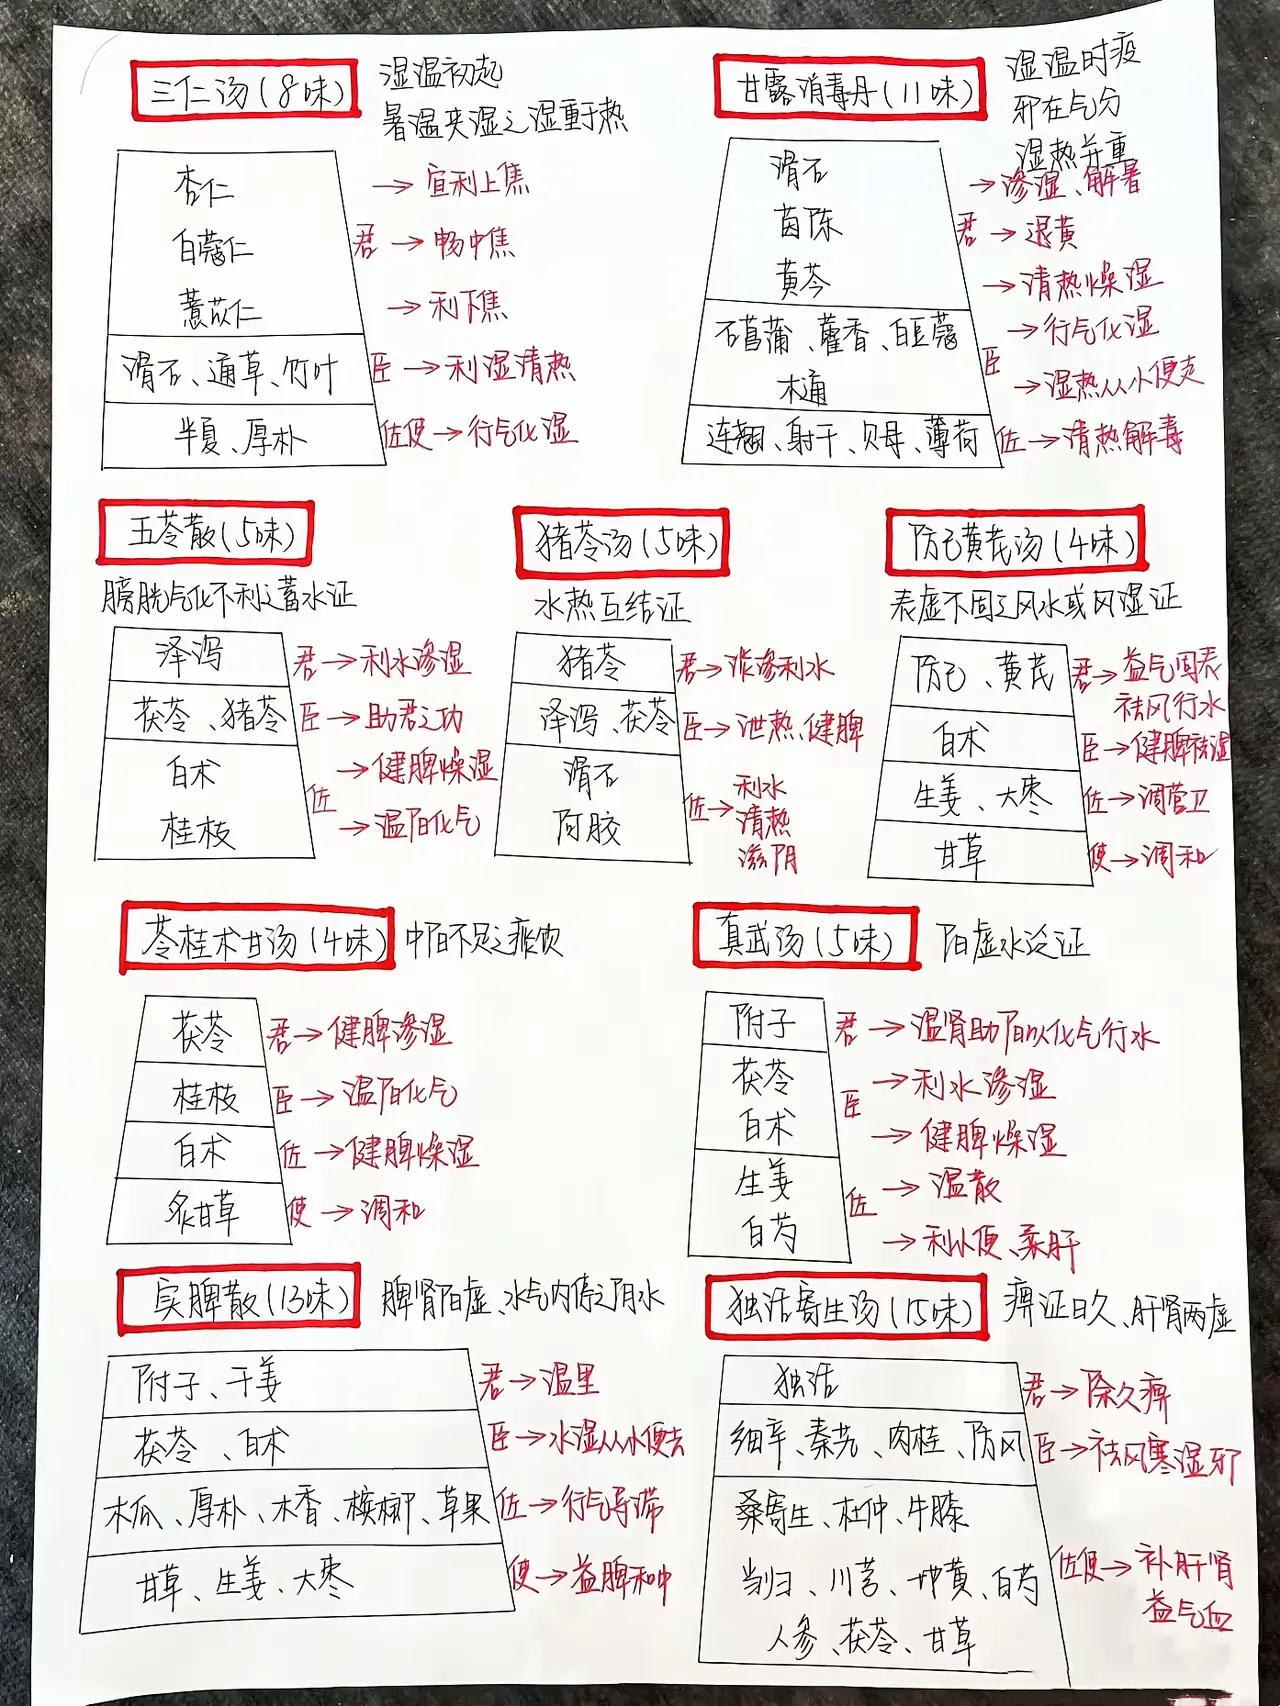 三仁汤(8味)
湿温初起
暑温夹湿之湿重于热
杏仁
→宣利上焦
白蔻仁
君→畅中焦
薏苡仁
→利下焦
滑石、通草、竹叶
臣→利湿清热
半夏、厚朴
佐使→行气化湿
甘露消毒丹(11味)
湿温时疫
邪在气分
湿热并重
滑石
→渗湿、解暑
茵陈
君→退黄
黄芩
→清热燥湿
石菖蒲、藿香、白豆蔻
→行气化湿
臣
木通
→湿热从小便走
连翘、射干、贝母、薄荷
佐→清热解毒
五苓散(5味)
膀胱气化不利之蓄水证
泽泻
君→利水渗湿
茯苓、猪苓
臣→助君之功
白术
→健脾燥湿
佐
桂枝
→温阳化气
猪苓汤(5味)
水热互结证
猪苓
君→淡渗利水
泽泻、茯苓
臣→泄热、健脾
滑石
阿胶
佐→
利水
清热
滋阴
防己黄芪汤(4味)
表虚不固之风水或风湿证
防己、黄芪
君→益气固表
祛风行水
白术
臣→健脾祛湿
生姜、大枣
佐→调营卫
甘草
使→调和
苓桂术甘汤(4味)
中阳不足之痰饮
茯苓
君→健脾渗湿
桂枝
臣→温阳化气
白术
佐→健脾燥湿
炙甘草
使→调和
真武汤(5味)
阳虚水泛证
附子
君→温肾助阳以化气行水
茯苓
→利水渗湿
臣
白术
→健脾燥湿
生姜
→温散
佐
白芍
→利小便、柔肝
实脾散(13味)
脾肾阳虚、水气内停之阴水
附子、干姜
君→温里
茯苓、白术
臣→水湿从小便去
木瓜、厚朴、木香、槟榔、草果
佐→行气导滞
甘草、生姜、大枣
使→益脾和中
独活寄生汤(15味)
痹证日久、肝肾两虚
独活
君→除久痹
细辛、秦艽、肉桂、防风
臣→祛风寒湿邪
桑寄生、杜仲、牛膝
当归、川芎、地黄、白芍
人参、茯苓、甘草
佐使→补肝肾
益气血